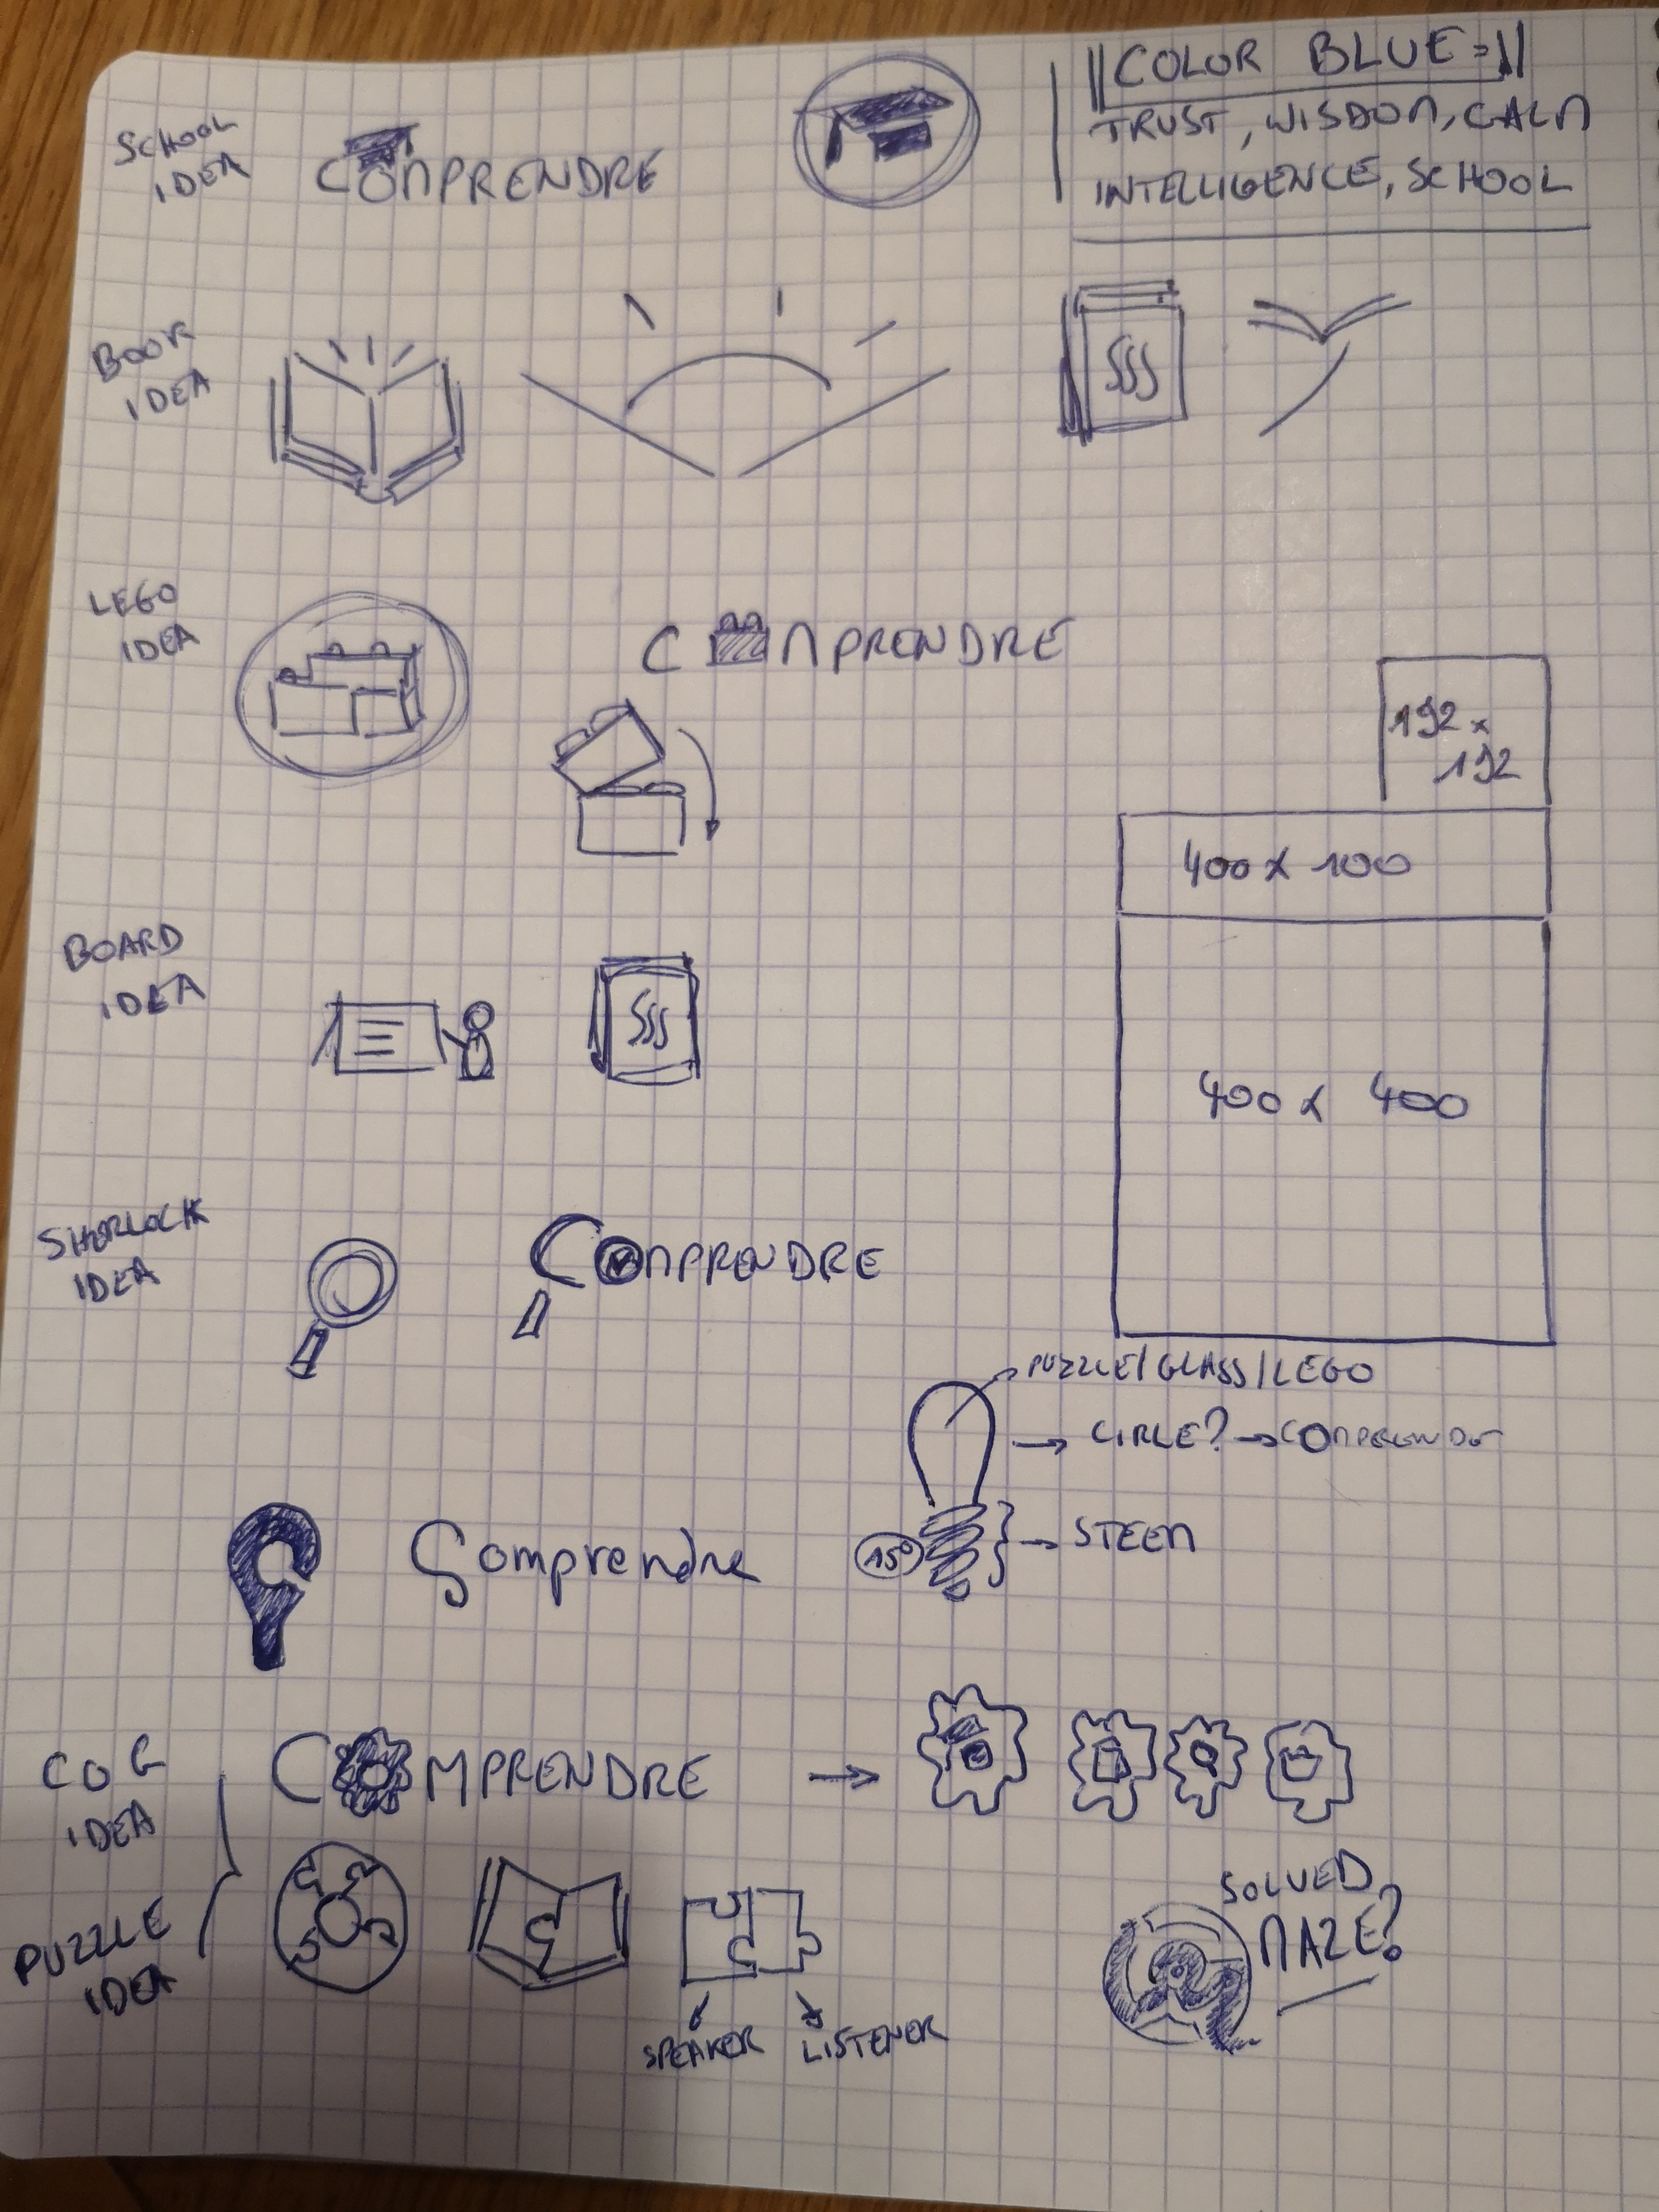 SCHOOL
IDEA
COMPRENDRE
COLOR BLUE =
TRUST, WISDOM, CALM
INTELLIGENCE, SCHOOL
BOOK
IDEA
LEGO
IDEA
C MPRENDRE
192 x
192
400 x 100
400 x 400
BOARD
IDEA
SHERLOCK
IDEA
COMPRENDRE
PUZZLE/GLASS/LEGO
CIRLE? → COMPRENDE
STEEM
15°
Comprendre
COG
IDEA
COMPRENDRE
PUZZLE
IDEA
SPEAKER
LISTENER
SOLVED
MAZE?